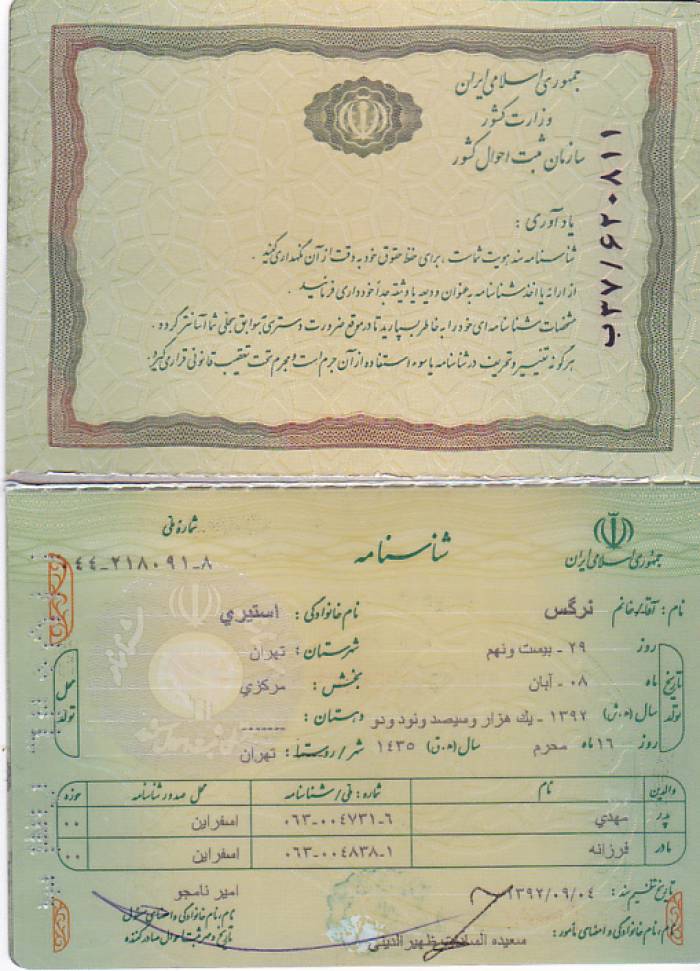 جمهوری اسلامی ایران
وزارت کشور
سازمان ثبت احوال کشور
ب۳۷/۶۲۰۸۱۱
یادآوری :
شناسنامه سند هویت شماست ، برای حفظ حقوق خود به دقت از آن نگهداری کنید .
از ارائه یا اخذ شناسنامه به عنوان ودیعه یا وثیقه جداً خودداری فرمائید .
مشخصات شناسنامه ای خود را به خاطر بسپارید تا در موقع ضرورت دسترسی به سوابق سجلی شما آسانتر گردد .
هرگونه تغییر و تحریف در شناسنامه یا سوء استفاده از آن جرم است و مجرم تحت تعقیب قانونی قرار می گیرد.
جمهوری اسلامی ایران
شناسنامه
شماره ملی
۰۴۴-۲۱۸۰۹۱-۸
نام : آقا/خانم نرگس نام خانوادگی : استيري
تاریخ تولد
روز ۲۹ - بیست ونهم شهرستان : تهران
ماه ۰۸ - آبان بخش : مرکزي
سال (ه.ش) ۱۳۹۲ - یك هزار وسیصد ونود ودو دهستان : -------
روز ۱۶ ماه محرم سال (ه.ق) ۱۴۳۵ شهر/روستا : تهران
محل تولد
والدین نام شماره : ملی/شناسنامه محل صدور شناسنامه حوزه
پدر مهدي ۰۶۳-۰۰۴۷۳۱-۶ اسفراین ۰۰
مادر فرزانه ۰۶۳-۰۰۴۸۳۸-۱ اسفراین ۰۰
تاریخ تنظیم سند : ۱۳۹۲/۰۹/۰۴ امیر نامجو
نام، نام خانوادگی و امضای مأمور : سعیده السادات ظهیر الدینی
نام، نام خانوادگی و امضای مسئول
تاریخ و مهر ثبت احوال صادر کننده